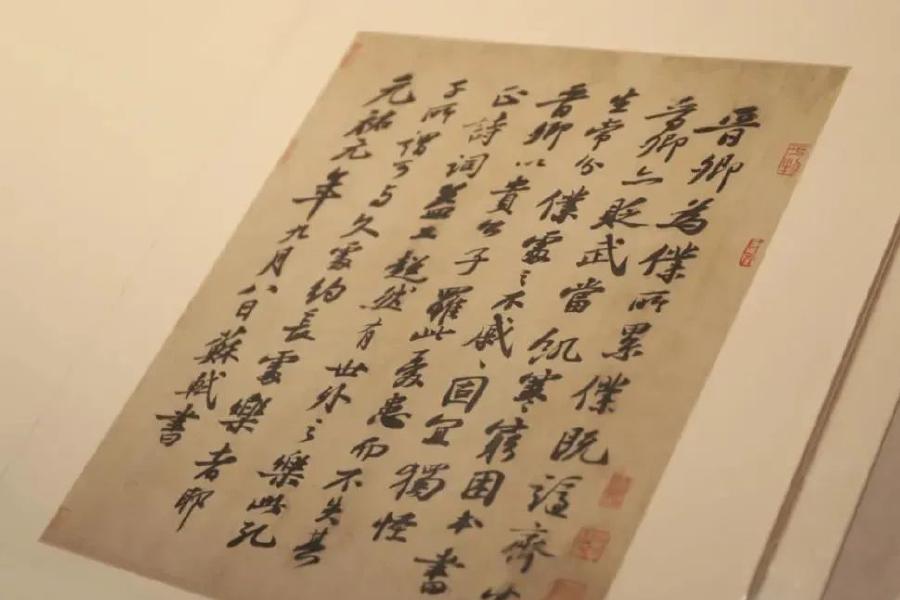 晉卿為僕所累僕既謫齊
晉卿亦貶武當飢寒窮困本書
生常分僕處之不戚〻固宜獨怪
晉卿以貴公子罹此憂患而不失其
正詩詞益工超然有世外之樂此孔
子所謂可与久處約長處樂者耶
元祐元年九月八日蘇軾書